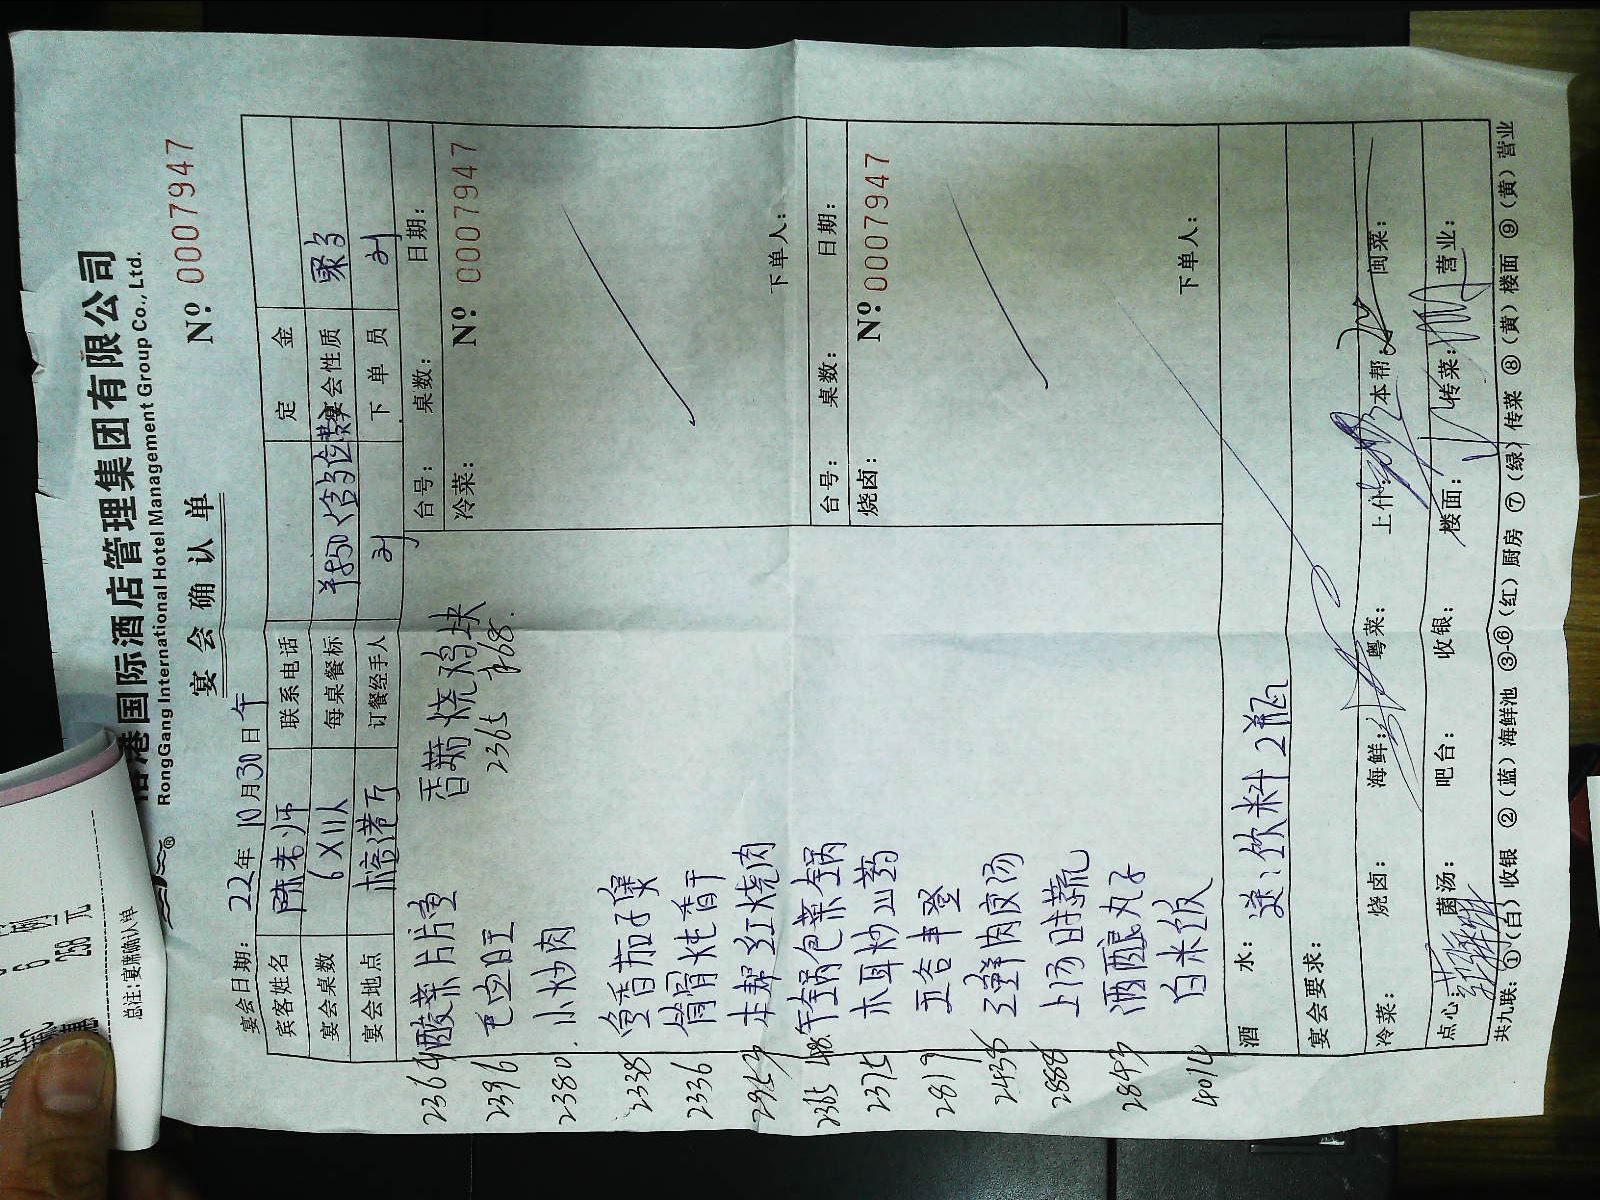 港国际酒店管理集团有限公司
RongGang International Hotel Management Group Co., Ltd.
宴会确认单
Nº 0007947
宴会日期: 22年 10月30日 午
宾客姓名 陈老师 联系电话 定金
宴会桌数 6×11人 每桌餐标 宴会性质 聚会
宴会地点 榕港厅 订餐经手人 下单员
2364 酸菜片片鱼
2396 毛血旺
2380. 小炒肉
2338 鱼香茄子煲
2336 筒骨炖香干
本帮红烧肉
2365 包菜
2375 木耳炒山药
2819 五谷丰登
2438 三鲜肉皮汤
2888 上汤时蔬
2843 酒酿丸子
4014 白米饭
烧鸡块
2365 ¥68.
台号: 桌数: 日期:
冷菜: Nº 0007947
下单人:
台号: 桌数: 日期:
烧卤: Nº 0007947
下单人:
酒水: 送:饮料2瓶
宴会要求:
冷菜: 烧卤: 海鲜: 粤菜: 上什: 本帮: 闽菜:
点心: 菌汤: 吧台: 收银: 楼面: 传菜: 营业:
共九联: ①(白)收银 ②(蓝)海鲜池 ③-⑥(红)厨房 ⑦(绿)传菜 ⑧(黄)楼面 ⑨(黄)营业
6
268 元
总注:宴席确认单